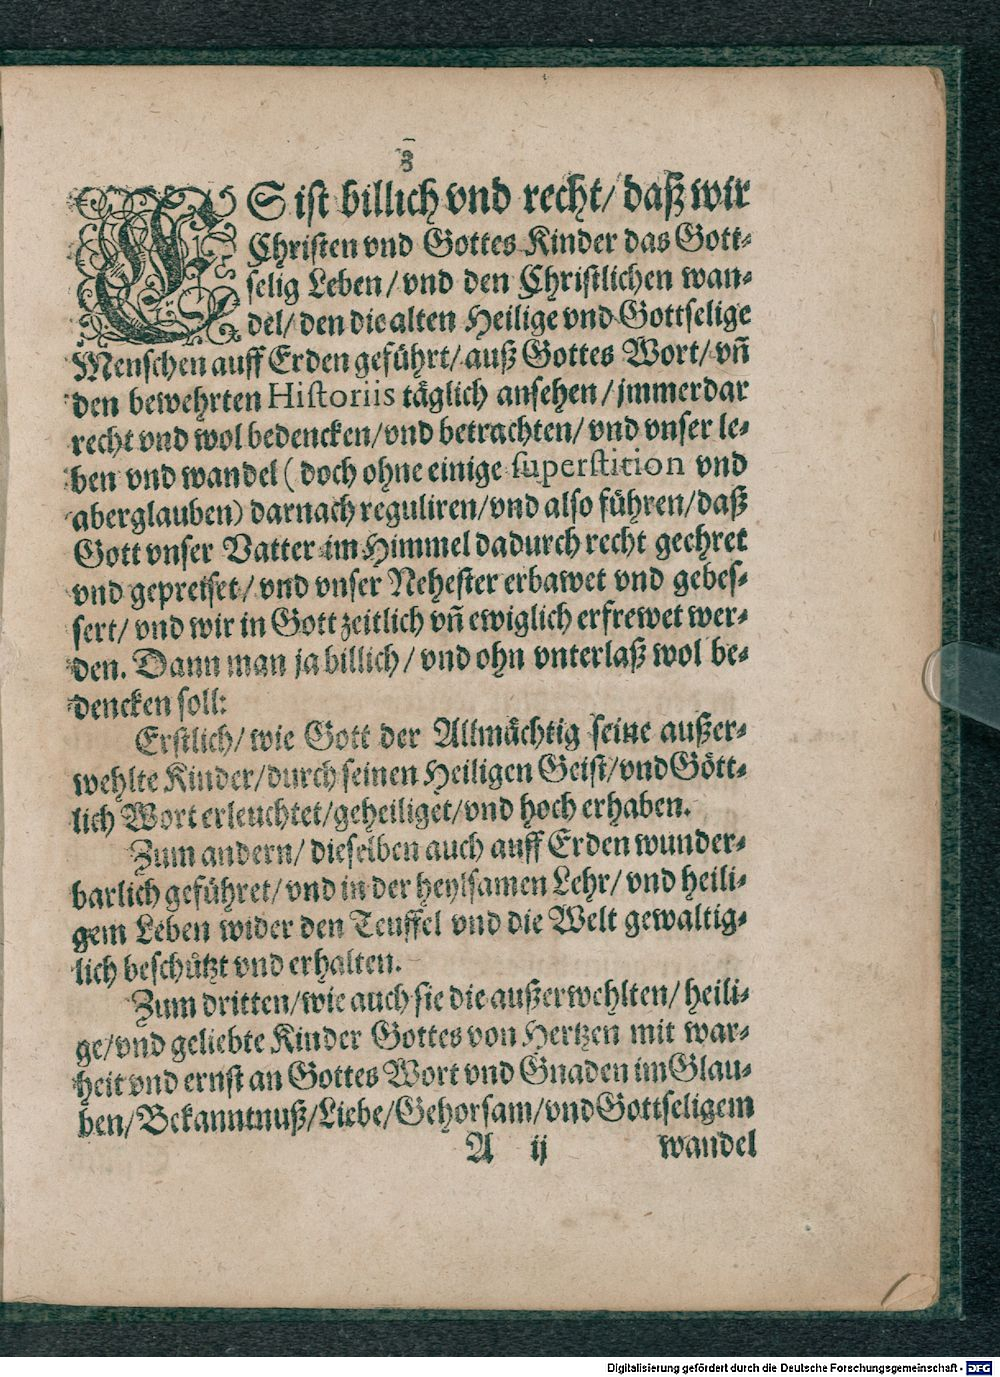 3
ES ist billich vnd recht/ daß wir
Christen vnd Gottes Kinder das Gott⸗
selig Leben/ vnd den Christlichen wan⸗
del/ den die alten Heilige vnd Gottselige
Menschen auff Erden geführt/ auß Gottes Wort/ vñ
den bewehrten Historiis täglich ansehen/ jmmerdar
recht vnd wol bedencken/ vnd betrachten/ vnd vnser le⸗
ben vnd wandel (doch ohne einige superstition vnd
aberglauben) darnach reguliren/ vnd also führen/ daß
Gott vnser Vatter im Himmel dadurch recht geehret
vnd gepreiset/ vnd vnser Nehester erbawet vnd gebes⸗
sert/ vnd wir in Gott zeitlich vñ ewiglich erfrewet wer⸗
den. Dann man ja billich/ vnd ohn vnterlaß wol be⸗
dencken soll:
Erstlich/ wie Gott der Allmächtig seine außer⸗
wehlte Kinder/ durch seinen Heiligen Geist/ vnd Gött⸗
lich Wort erleuchtet/ geheiliget/ vnd hoch erhaben.
Zum andern/ dieselben auch auff Erden wunder⸗
barlich geführet/ vnd in der heylsamen Lehr/ vnd heili⸗
gem Leben wider den Teuffel vnd die Welt gewaltig⸗
lich beschützt vnd erhalten.
Zum dritten/ wie auch sie die außerwehlten/ heili⸗
ge/ vnd geliebte Kinder Gottes von Hertzen mit war⸗
heit vnd ernst an Gottes Wort vnd Gnaden im Glau⸗
ben/ Bekanntnuß/ Liebe/ Gehorsam/ vnd Gottseligem
A ij wandel
Digitalisierung gefördert durch die Deutsche Forschungsgemeinschaft - DFG